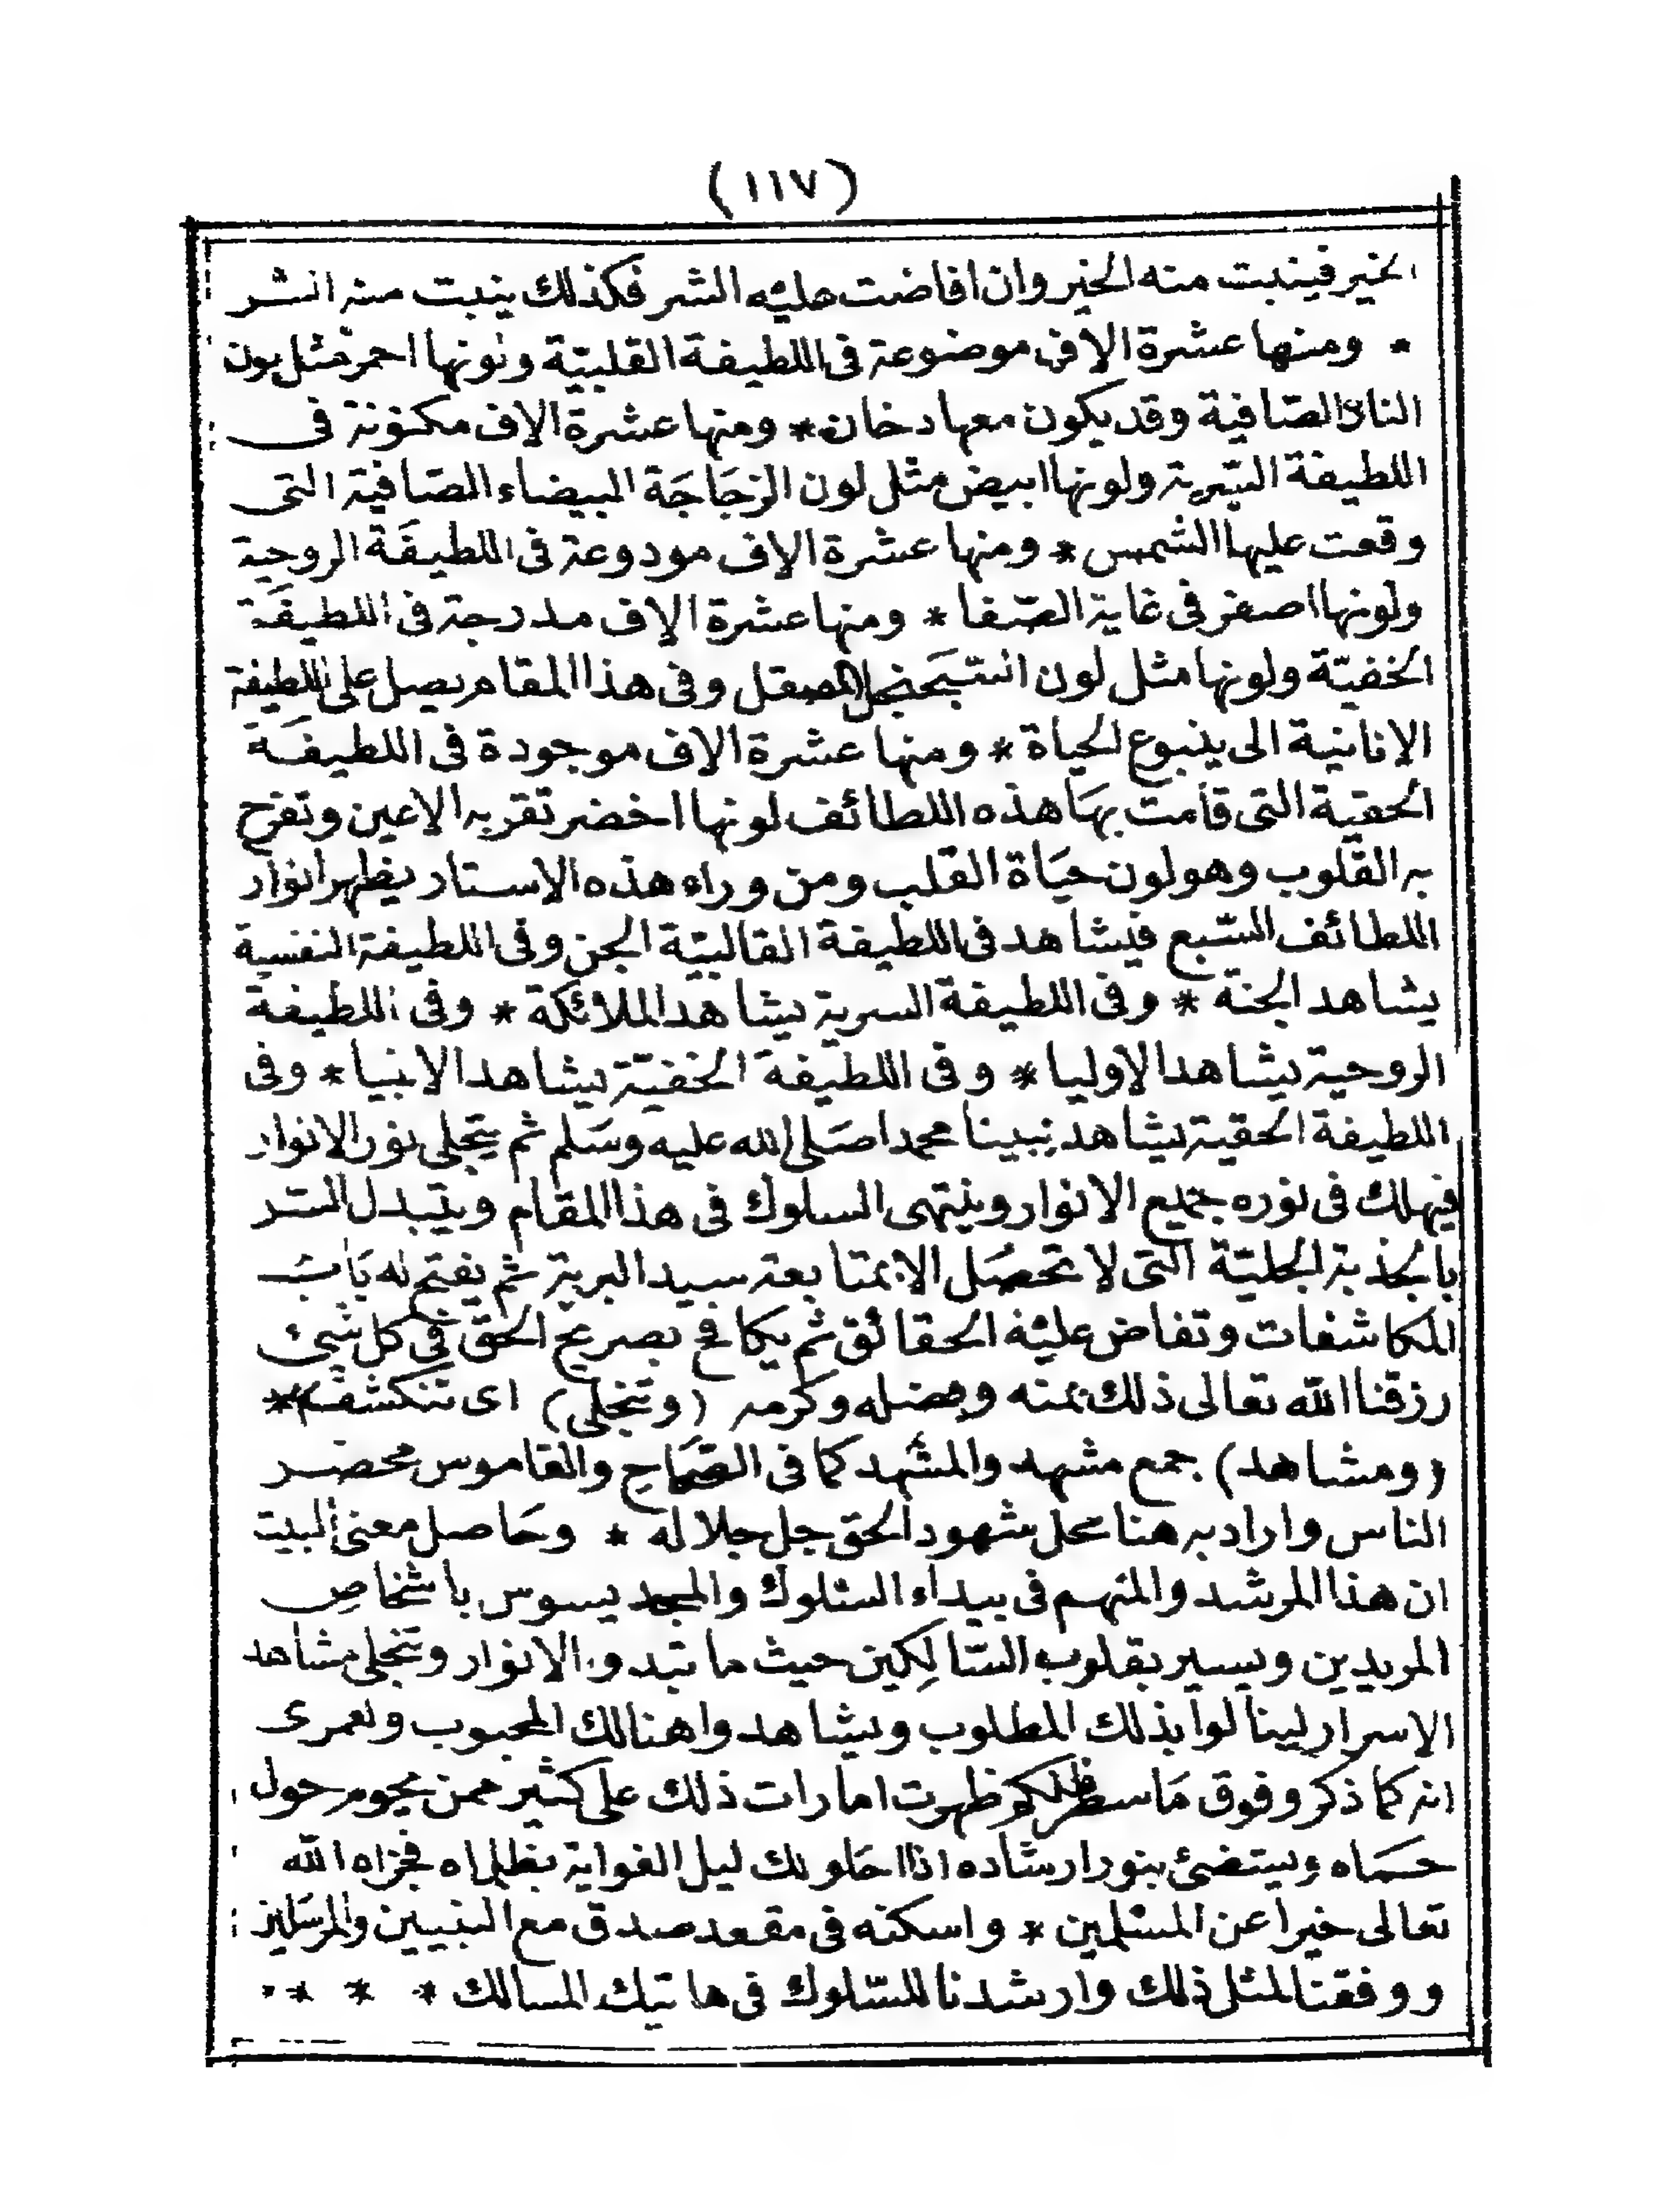 (١١٧)
الخير فينبت منه الخير وان افاضت عليه الشر فكذلك ينبت منه الشر
* ومنها عشرة الاف موضوعة فى اللطيفة القلبيّة ولونها احمر مثل لون
النار الصّافية وقد يكون معها دخان * ومنها عشرة الاف مكنونة فى
اللطيفة السّرية ولونها ابيض مثل لون الزجَاجَة البيضاء الصّافية التى
وقعت عليها الشمس * ومنها عشرة الاف مودوعة فى اللطيفَة الروحية
ولونها اصفر فى غاية الصّفا * ومنها عشرة الاف مدرجة فى اللطيفَة
الخفيّة ولونها مثل لون السّجَنجل المصقل وفى هذا المقام يصل على اللطيفة
الانانية الى ينبوع الحياة * ومنها عشرة الاف موجودة فى اللطيفَة
الحقية التى قامت بهَا هذه اللطائف لونها اخضر تقر به الاعين وتفرح
به القلوب وهو لون حيَاة القلب ومن وراء هذه الاستار يظهر انوار
اللطائف السّبع فيشاهد فى اللطيفة القالبيّة الجن وفى اللطيفة النفسية
يشاهد الجنة * وفى اللطيفة السرية يشاهد الملائكة * وفى اللطيفة
الروحية يشاهد الاوليا * وفى اللطيفة الخفيّة يشاهد الانبيا * وفى
اللطيفة الحقية يشاهد نبينا محمدا صَلى الله عليه وسَلم ثم يتجلى نور الانوار
فيهلك فى نوره جميع الانوار وينتهى السلوك فى هذا المقام ويتبدل الستر
بالجذبة الجليّة التى لا تحصَل الا بمتابعة سيد البرية ثم يفتح له بَابُ
المكاشفات وتفاض عليْه الحقائق ثم يكافح بصريح الحق فى كل شئ
رزقنا الله تعالى ذلك بمنه وفضله وكرمه (وتنجلى) اى تنكشف *
(ومشاهد) جمع مشهد والمشهد كما فى الصّحاح والقاموس محضر
الناس واراد به هنا محل شهود الحق جل جلاله * وحَاصل معنى البيت
ان هذا المرشد والمتهم فى بيداء السّلوك والمجد يسوس باشخاص
المريدين ويسير بقلوب السّالِكين حيث ما تبدو الانوار وتنجلى مشاهد
الاسرار لينالوا بذلك المطلوب ويشاهدوا هنالك المحبوب ولعمرى
انه كما ذكر وفوق مَا سطر فلكم ظهرت امارات ذلك على كثير ممن يحوم حول
حمَاه ويستضئ بنور ارشاده اذا احلولك ليل الغواية بظلماه فجزاه الله
تعالى خيرا عن المسْلمين * واسكنه فى مقعد صدق مع النبيين والمرسَلين
ووفقنا لمثل ذلك وارشدنا للسّلوك فى هاتيك المسالك * * * *